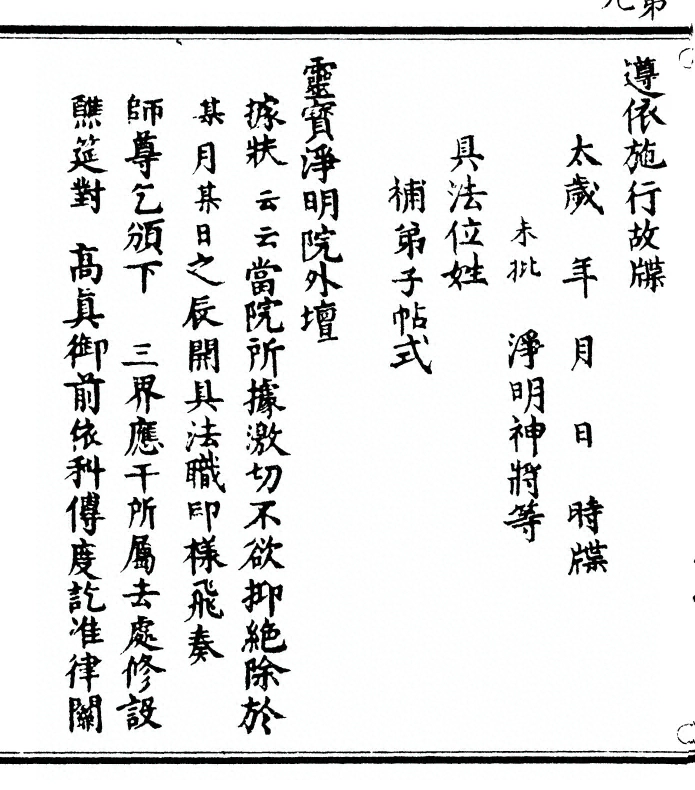 遵依施行故牒
太歲 年 月 日 時牒
未批 淨明神將等
具法位姓
補弟子帖式
靈寶淨明院外壇
據狀 云云當院所據激切不欲抑絕除於
某月某日之辰開具法職印樣飛奏
師尊乞頒下 三界應干所屬去處修設
醮筵對 高眞御前依科傳度訖准律關